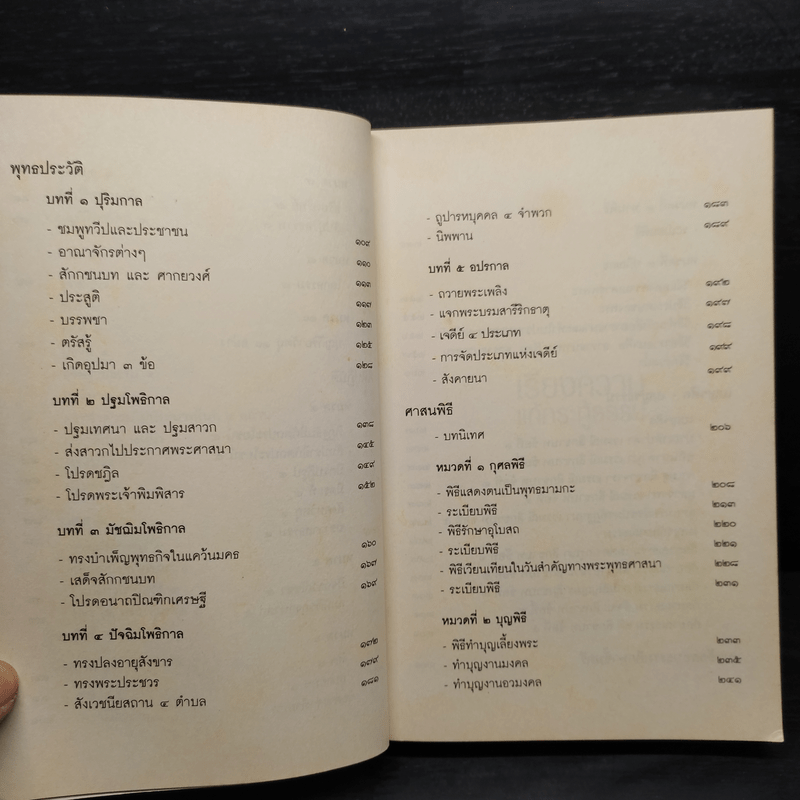 พุทธประวัติ
บทที่ ๑ ปุริมกาล
- ชมพูทวีปและประชาชน ๑๐๙
- อาณาจักรต่างๆ ๑๑๐
- สักกชนบท และ ศากยวงศ์ ๑๑๓
- ประสูติ ๑๑๗
- บรรพชา ๑๒๓
- ตรัสรู้ ๑๒๕
- เกิดอุปมา ๓ ข้อ ๑๒๘
บทที่ ๒ ปฐมโพธิกาล
- ปฐมเทศนา และ ปฐมสาวก ๑๓๘
- ส่งสาวกไปประกาศพระศาสนา ๑๔๕
- โปรดชฎิล ๑๔๙
- โปรดพระเจ้าพิมพิสาร ๑๕๒
บทที่ ๓ มัชฌิมโพธิกาล
- ทรงบำเพ็ญพุทธกิจในแคว้นมคธ ๑๖๐
- เสด็จสักกชนบท ๑๖๗
- โปรดอนาถปิณฑิกเศรษฐี ๑๖๙
บทที่ ๔ ปัจฉิมโพธิกาล
- ทรงปลงอายุสังขาร ๑๗๒
- ทรงพระประชวร ๑๗๙
- สังเวชนียสถาน ๔ ตำบล ๑๘๑
- ถูปารหบุคคล ๔ จำพวก ๑๘๓
- นิพพาน ๑๘๙
บทที่ ๕ อปรกาล
- ถวายพระเพลิง ๑๙๒
- แจกพระบรมสารีริกธาตุ ๑๙๗
- เจดีย์ ๔ ประเภท ๑๙๘
- การจัดประเภทแห่งเจดีย์ ๑๙๙
- สังคายนา ๑๙๙
ศาสนพิธี
- บทนิเทศ ๒๐๖
หมวดที่ ๑ กุศลพิธี
- พิธีแสดงตนเป็นพุทธมามกะ ๒๐๘
- ระเบียบพิธี ๒๑๓
- พิธีรักษาอุโบสถ ๒๒๐
- ระเบียบพิธี ๒๒๑
- พิธีเวียนเทียนในวันสำคัญทางพระพุทธศาสนา ๒๒๘
- ระเบียบพิธี ๒๓๑
หมวดที่ ๒ บุญพิธี
- พิธีทำบุญเลี้ยงพระ ๒๓๓
- ทำบุญงานมงคล ๒๓๕
- ทำบุญงานอวมงคล ๒๔๑